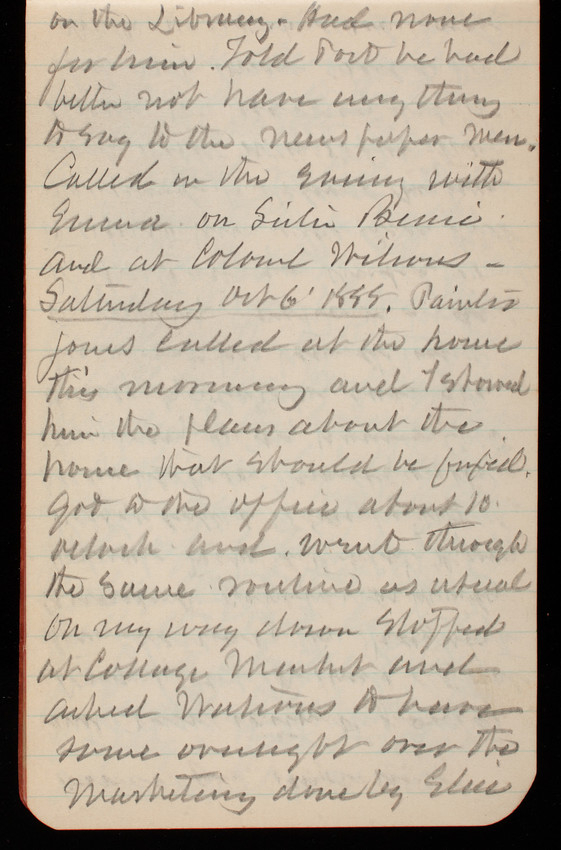 on the Library. Had none
for him. Told Port he had
better not have anything
to say to the newspaper men.
Called in the evening with
Emma on Sister Bessie
and at Colonel Wilsons -
Saturday Oct 6' 1888. Painter
jones called at the home
this morning and I showed
him the places about the
home that should be fixed.
got to the office about 10.
oclock and went through
the same routine as usual
on my way down stopped
at Cottage Market and
asked Watkins to have
some oversight over the
Marketing done by Elsie